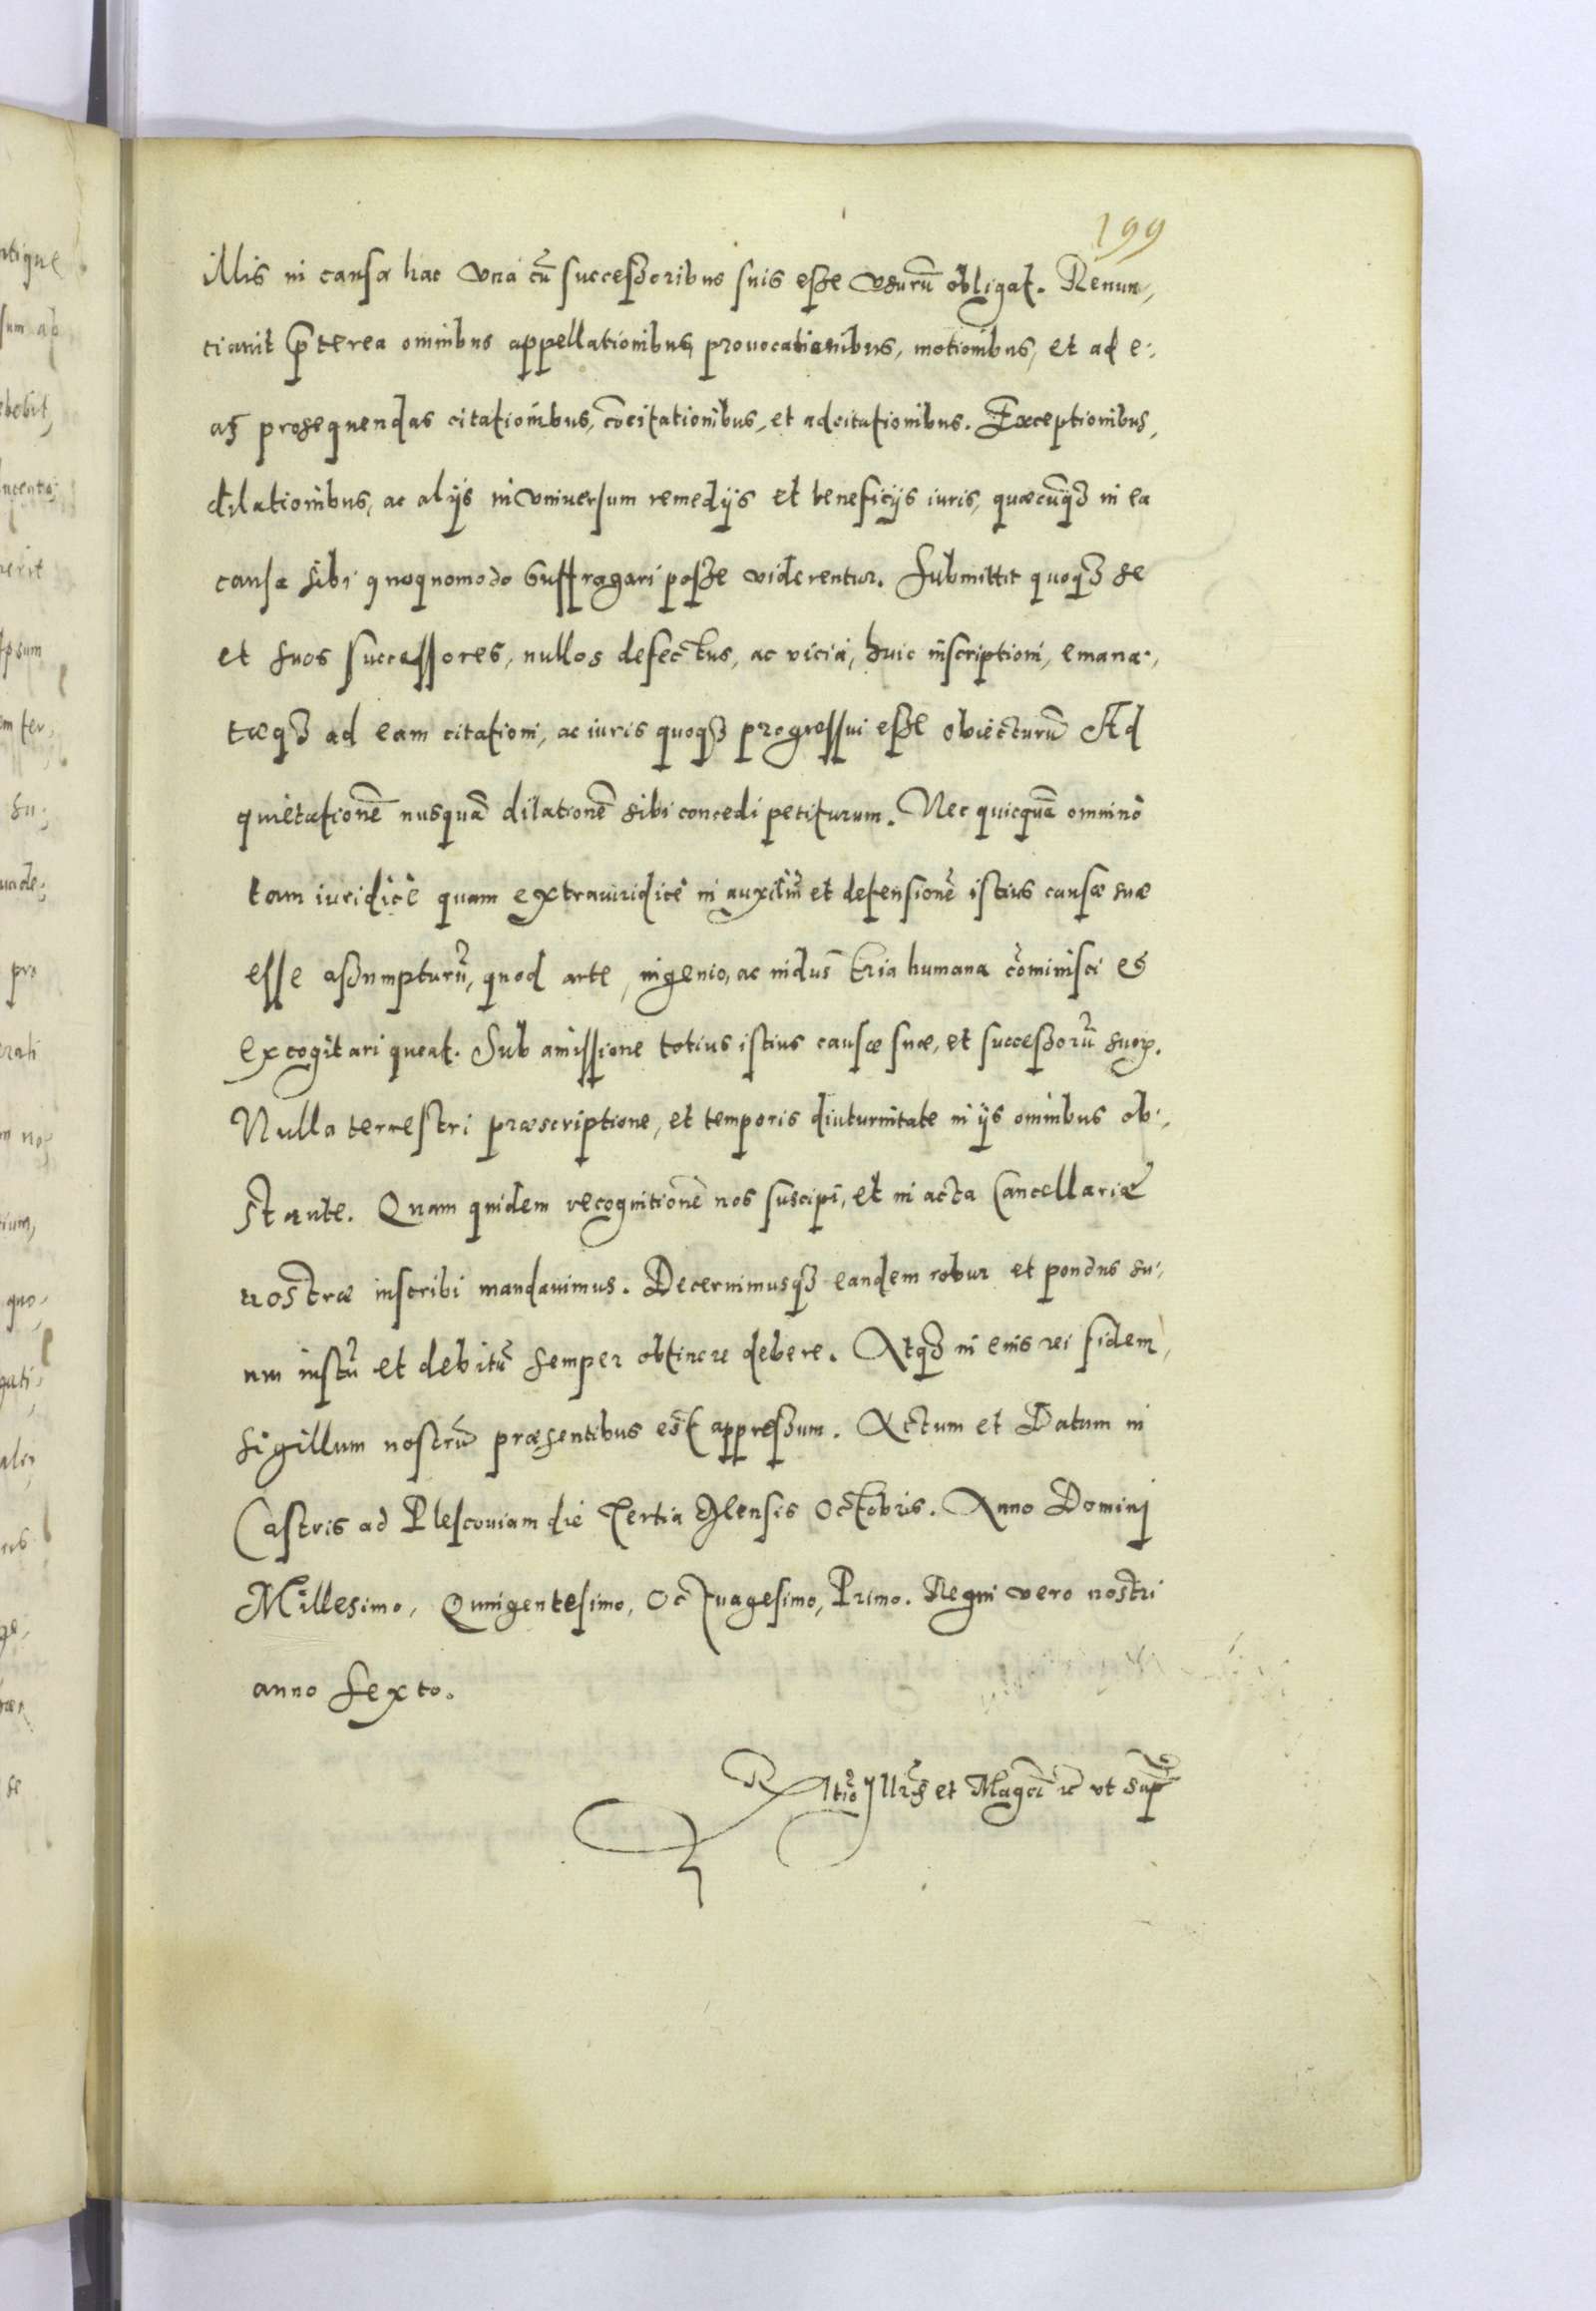 199
illis in causa hac vna cū successoribus suis esse vsurū obligat. Renun,
ciauit p̄terea omnibus appellationibus, prouocationibus, motionibus, et ad e,
as prosequendas citationibus, cōcitationibus, et adcitationibus. Exceptionibus,
dilationibus, ac alijs in vniuersum remedijs et beneficijs iuris, quæcūq₃ in ea
causa sibi quoquomodo suffragari posse viderentur. Submittit quoq₃ se
et suos successores, nullos defectus, ac vicia, huic inscriptioni, emana,
tæq₃ ad eam citationi, ac iuris quoq₃ progressui esse obiecturū Ad
quietationē nusquā dilationē sibi concedi petiturum. Nec quicquā omninò
tam iuridicè quam extrauiridicè in auxiliū et defensionē istius causæ suæ
esse assumpturū, quod arte, ingenio, ac indus̄tria humana cōminisci es
excogitari queat. Sub amissione totius istius causæ suæ, et successorū suoꝝ.
Nulla terrestri præscriptione, et temporis diuturnitate in ijs omnibus ob,
stante. Quam quidem recognitionē nos suscipi, et in acta Cancellariæ
nostræ inscribi mandauimus. Decernimusq₃ eandem robur et pondus su,
um iustū et debitū semper obtinere debere. Atq₃ in eius rei fidem,
sigillum nostrū præsentibus est appressum. Actum et Datum in
Castris ad Plescouiam die Tertia Mensis Octobris. Anno Domini
Millesimo, Quingentesimo, Octuagesimo, Primo. Regni vero nostri
anno sexto.
Rltio Jllris et Magci ꝛc vt sup̄